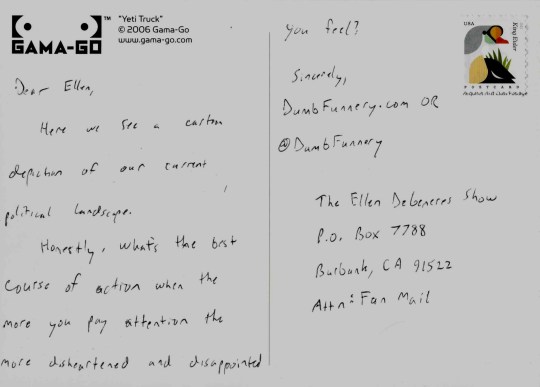 GAMA-GO™
"Yeti Truck"
© 2006 Gama-Go
www.gama-go.com
Dear Ellen,
Here we see a cartoon
depiction of our current
political landscape.
Honestly, what's the best
course of action when the
more you pay attention the
more disheartened and disappointed
you feel?
Sincerely,
DumbFunnery.com OR
@DumbFunnery
USA
King Eider
POSTCARD
The Ellen Degeneres Show
P.O. Box 7788
Burbank, CA 91522
Attn: Fan Mail